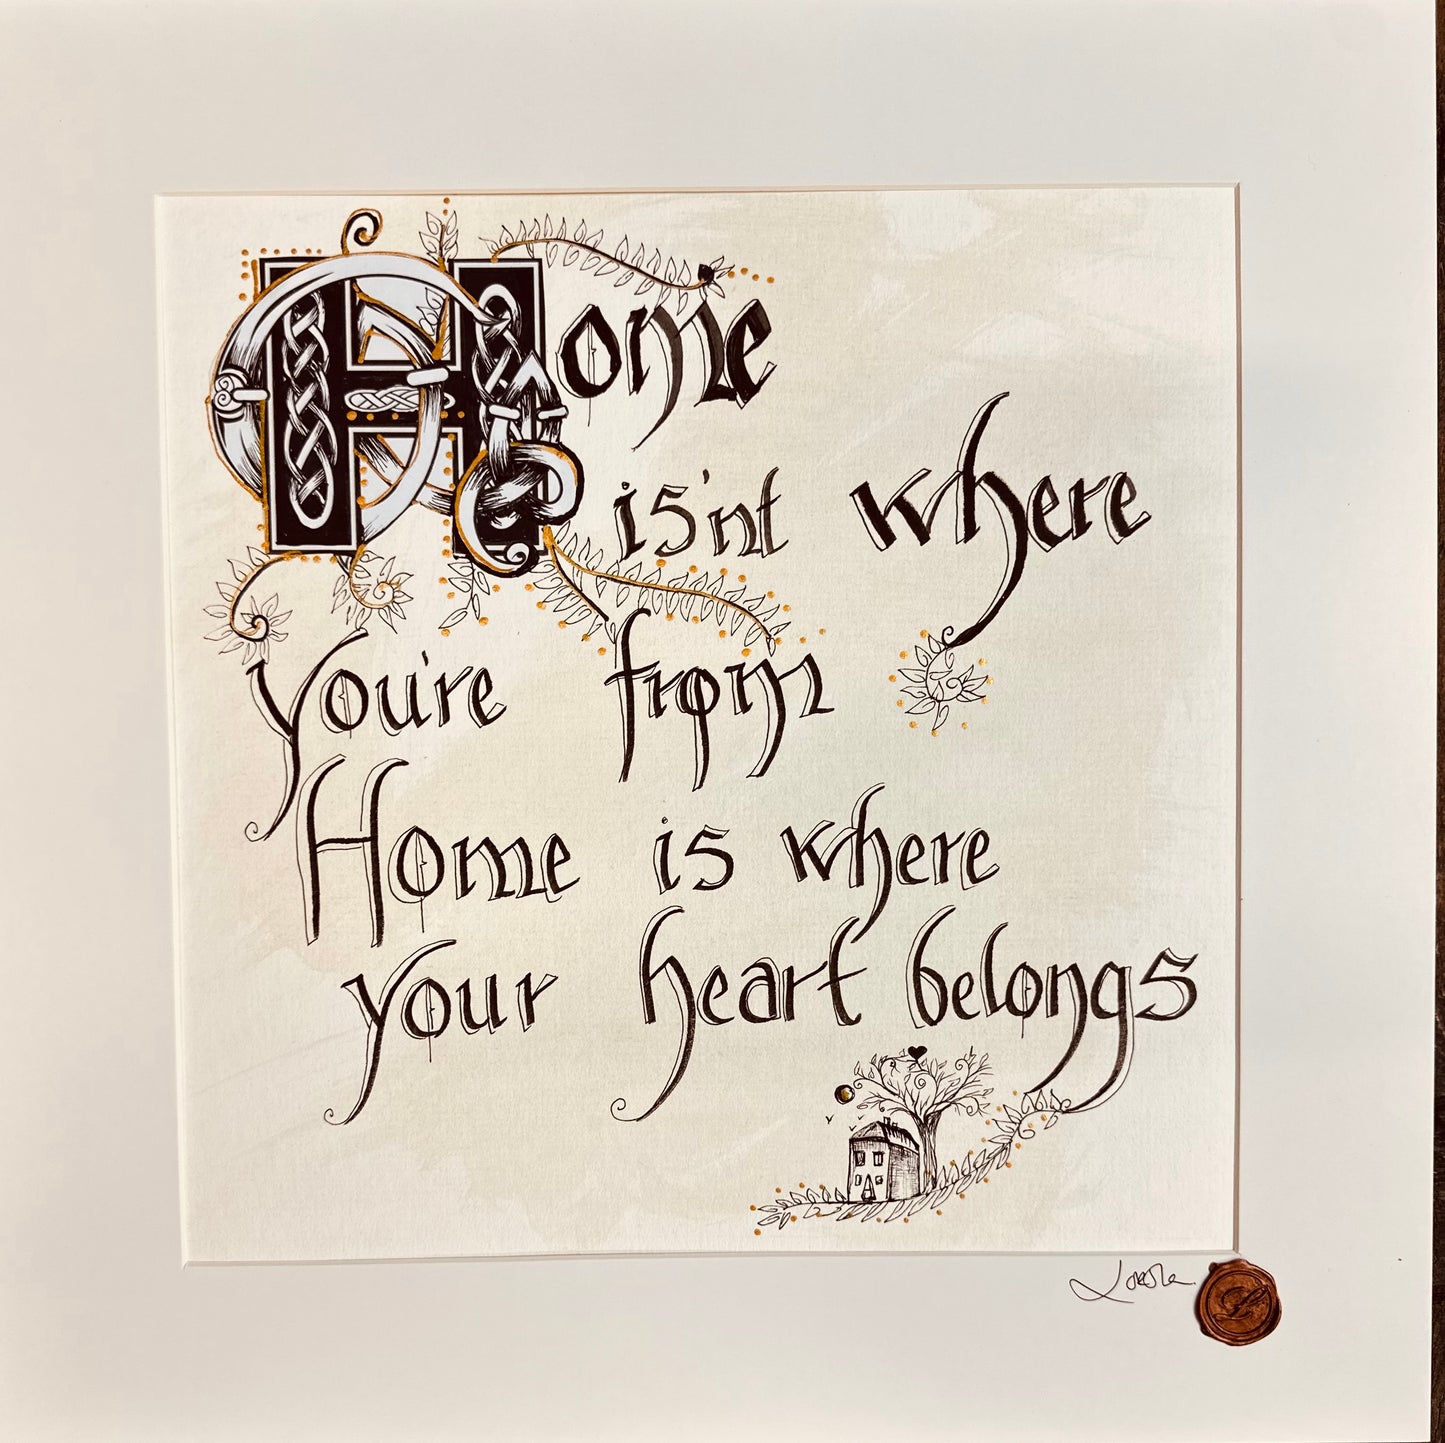 Home
is'nt where
you're from
Home is where
your heart belongs
L